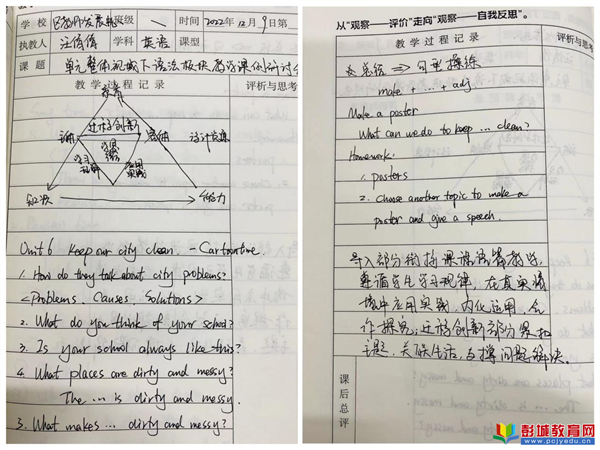 学校 班级 一 时间 2022年12月9日第
执教人 汪倩倩 学科 英语 课型
课题 单元整体视域下语法板块教学课例研讨会
教学过程记录 评析与思考
素养
迁移创新
学习理解 应用实践
知识 能力
Unit 6 Keep our city clean. - Cartoon time
1. How do they talk about city problems?
<Problems Causes Solutions>
2. What do you think of your school?
3. Is your school always like this?
4. What places are dirty and messy?
The ... is dirty and messy.
5. What makes ... dirty and messy?
从“观察——评价”走向“观察——自我反思”。
教学过程记录 评析与思考
总结 ⇒ 句型操练
make + ... + adj.
Make a poster
What can we do to keep ... clean?
Homework:
1. posters
2. Choose another topic to make a
poster and give a speech.
导入部分
遵循学生学习规律，在真实情
境中应用实践，内化运用，合
作探究；迁移创新部分
主题，关联生活，支撑问题解决。
课后总评
彭城教育网
www.pcjyedu.cn